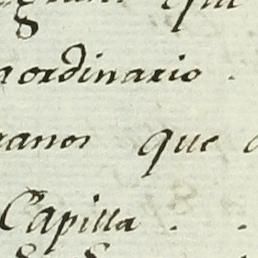 aordinario .
anos que
Capilla . .